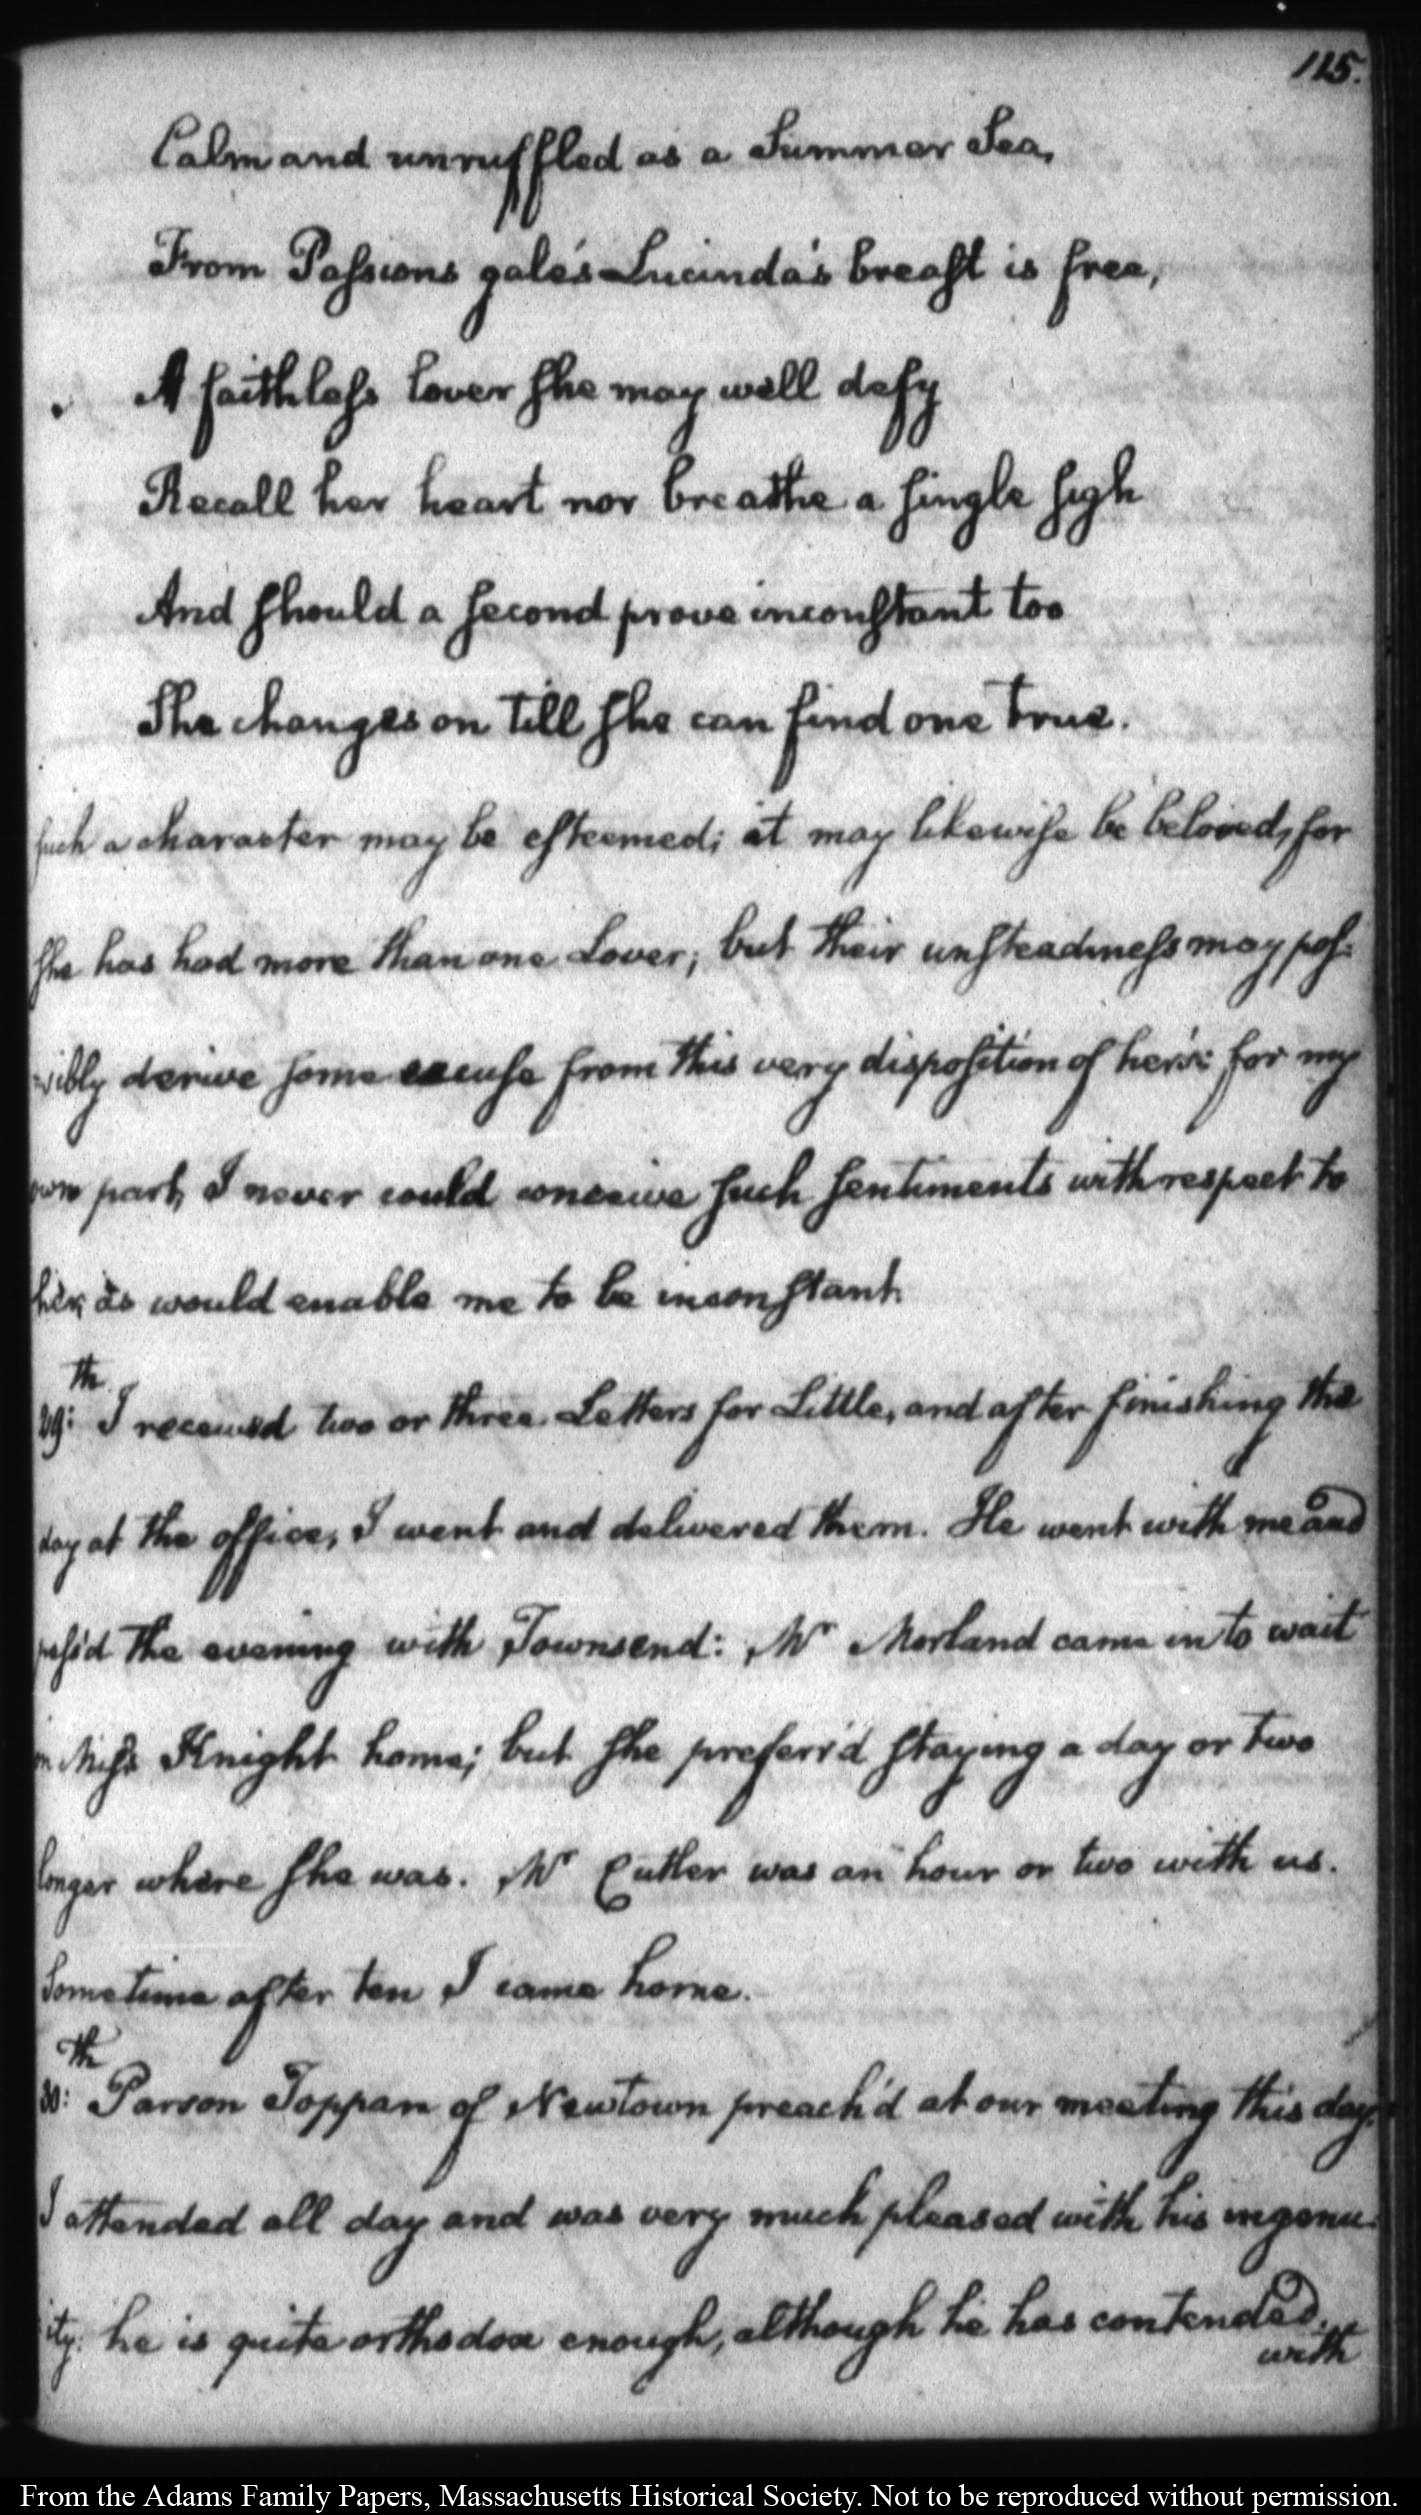 115.
Calm and unruffled as a Summer Sea,
From Passions gale's Lucinda's breast is free,
A faithless lover she may well defy
Recall her heart nor breathe a single sigh
And should a second prove inconstant too
She changes on till she can find one true.
such a character may be esteemed; it may likewise be beloved, for
she has had more than one Lover; but their unsteadiness may pos:
:sibly derive some excuse from this very disposition of her's: for my
own part, I never could conceive such sentiments with respect to
her, as would enable me to be inconstant.
29:th I received two or three Letters for Little, and after finishing the
day at the office, I went and delivered them. He went with me and
pass'd the evening with Townsend: Mr Morland came in to wait
on Miss Knight home; but she preferr'd staying a day or two
longer where she was. Mr Cutler was an hour or two with us.
Sometime after ten I came home.
30:th Parson Toppan of Newtown preach'd at our meeting this day.
I attended all day and was very much pleased with his ingenu:
:ity: he is quite orthodox enough, although he has contended
with
From the Adams Family Papers, Massachusetts Historical Society. Not to be reproduced without permission.